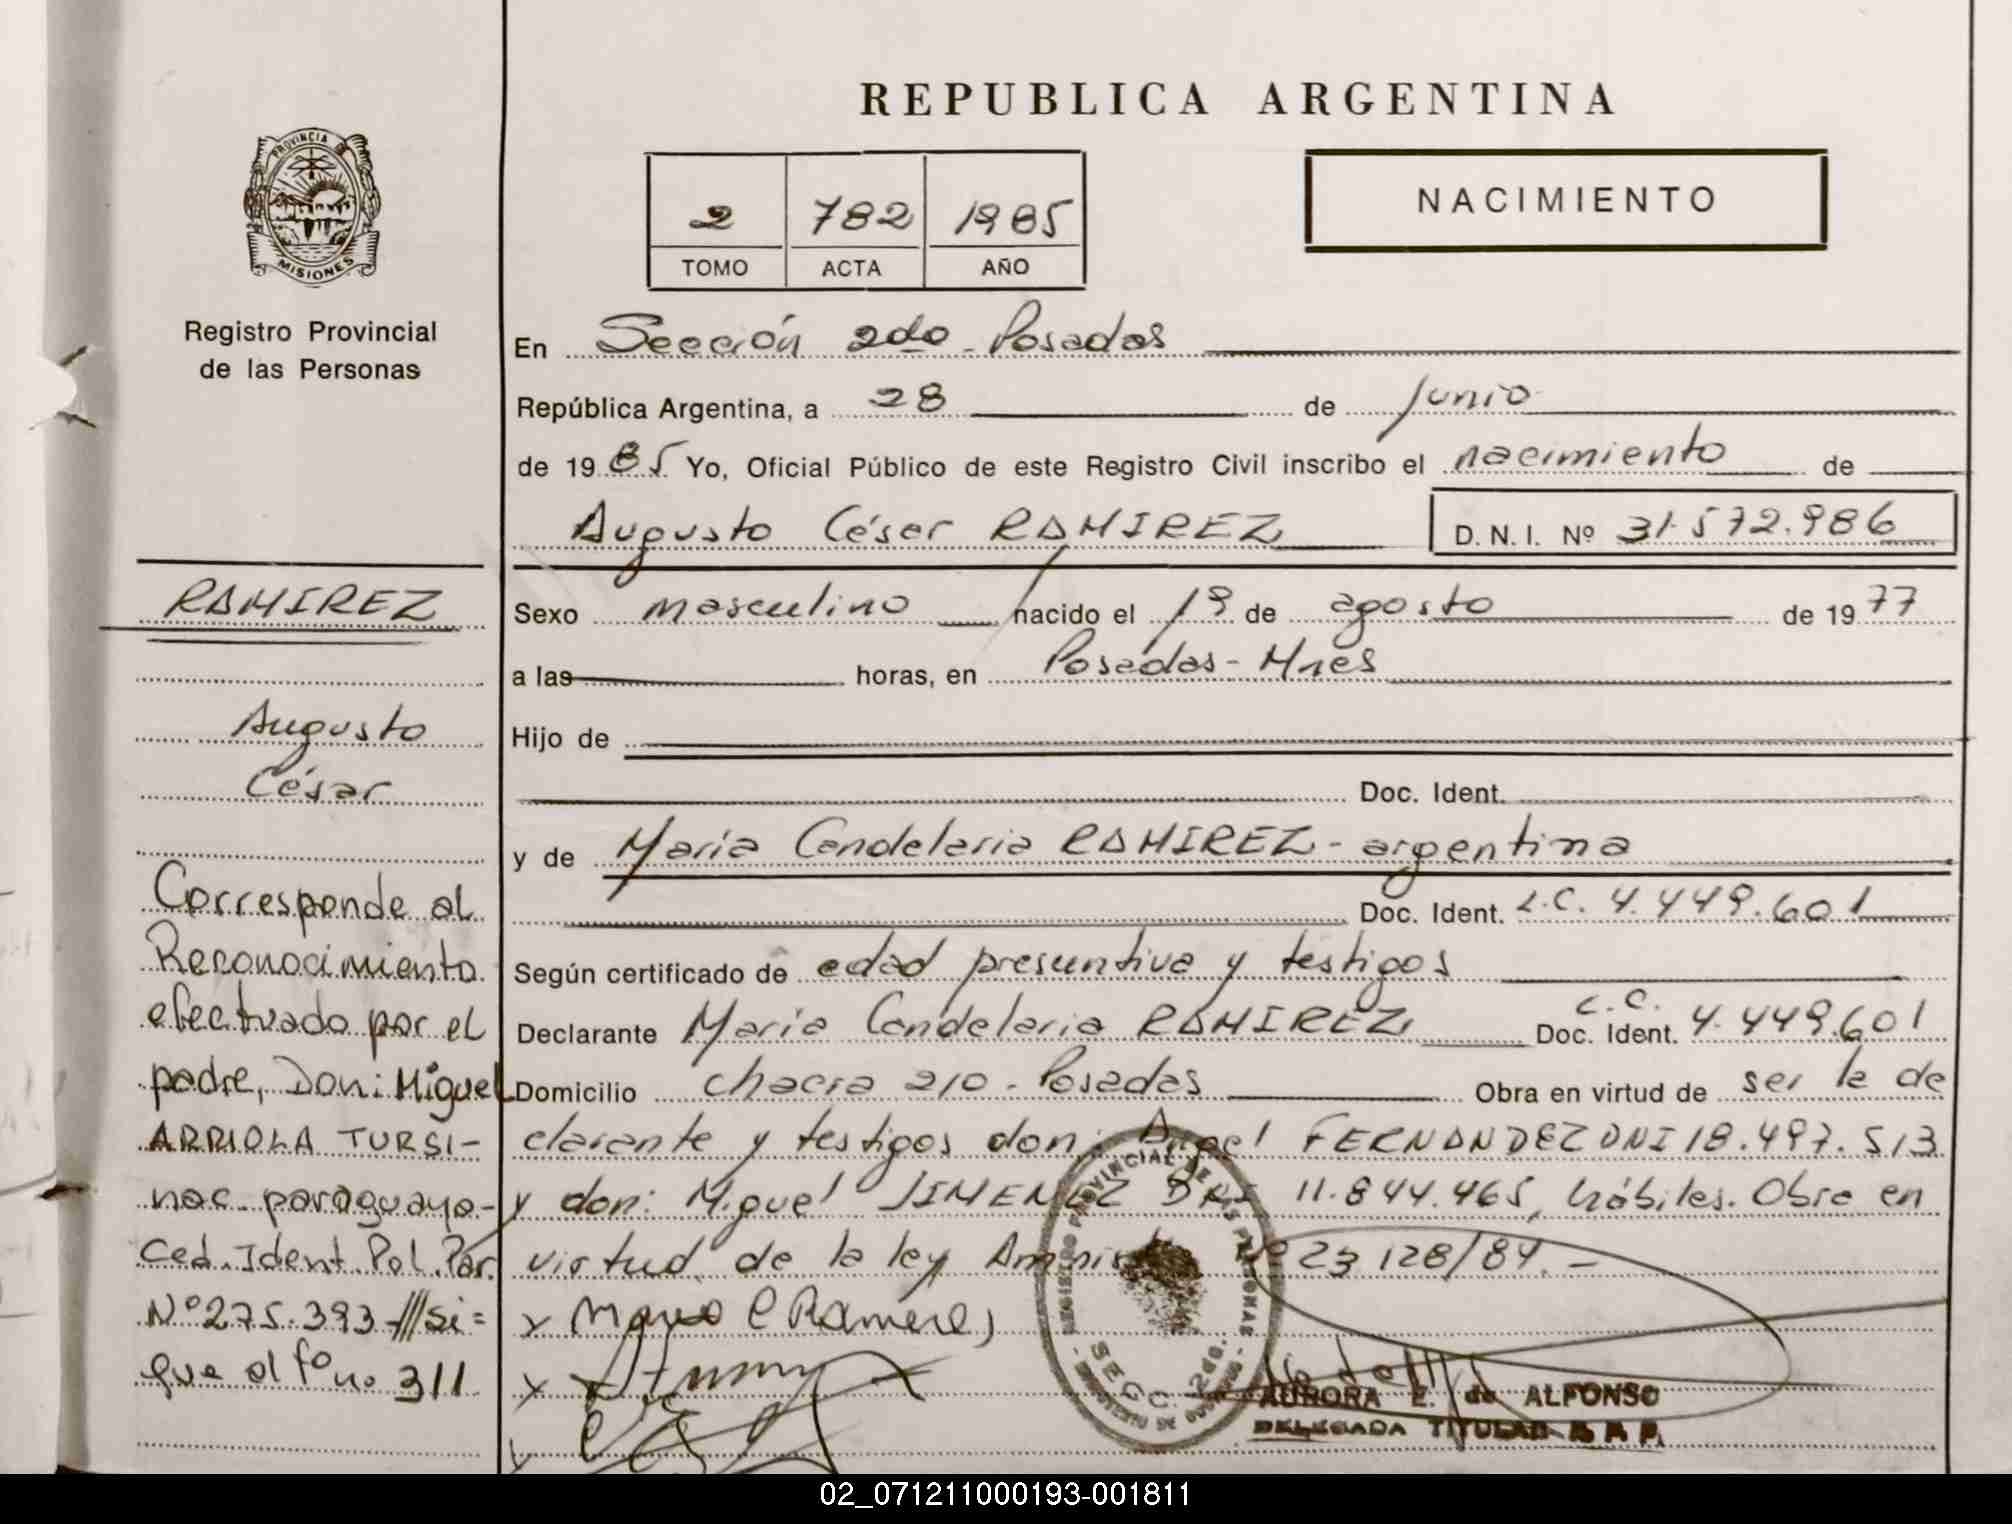 REPUBLICA ARGENTINA
PROVINCIA DE
MISIONES
Registro Provincial
de las Personas
2 782 1985
TOMO ACTA AÑO
NACIMIENTO
En Sección 2do - Posadas
República Argentina, a 28 de junio
de 1985 Yo, Oficial Público de este Registro Civil inscribo el nacimiento de
Augusto César RAMIREZ D.N.I. Nº 31.572.986
Sexo masculino nacido el 19 de agosto de 1977
a las horas, en Posadas - Mnes
Hijo de
Doc. Ident.
y de María Candelaria RAMIREZ - argentina
Doc. Ident. L.C. 4.449.601
Según certificado de edad presuntiva y testigos
Declarante María Candelaria RAMIREZ Doc. Ident. L.C. 4.449.601
Domicilio chacra 210 - Posadas Obra en virtud de ser la de
clarante y testigos don: Angel FERNANDEZ DNI 18.497.513
y don: Miguel JIMENEZ DNI 11.844.465, hábiles. Obra en
virtud de la ley Amnistía Nº 23128/84. -
RAMIREZ
Augusto
César
Corresponde al
Reconocimiento
efectuado por el
padre, Don: Miguel
ARRIOLA TURSI-
nac. paraguaya-
Ced. Ident. Pol. Par.
Nº 275.393-///si=
gue al fº no 311
x C Ramires
x
x
REGISTRO PROVINCIAL DE LAS PERSONAS
SECC. 2da.
AURORA E. de ALFONSO
DELEGADA TITULAR R. P. P.
02_071211000193-001811